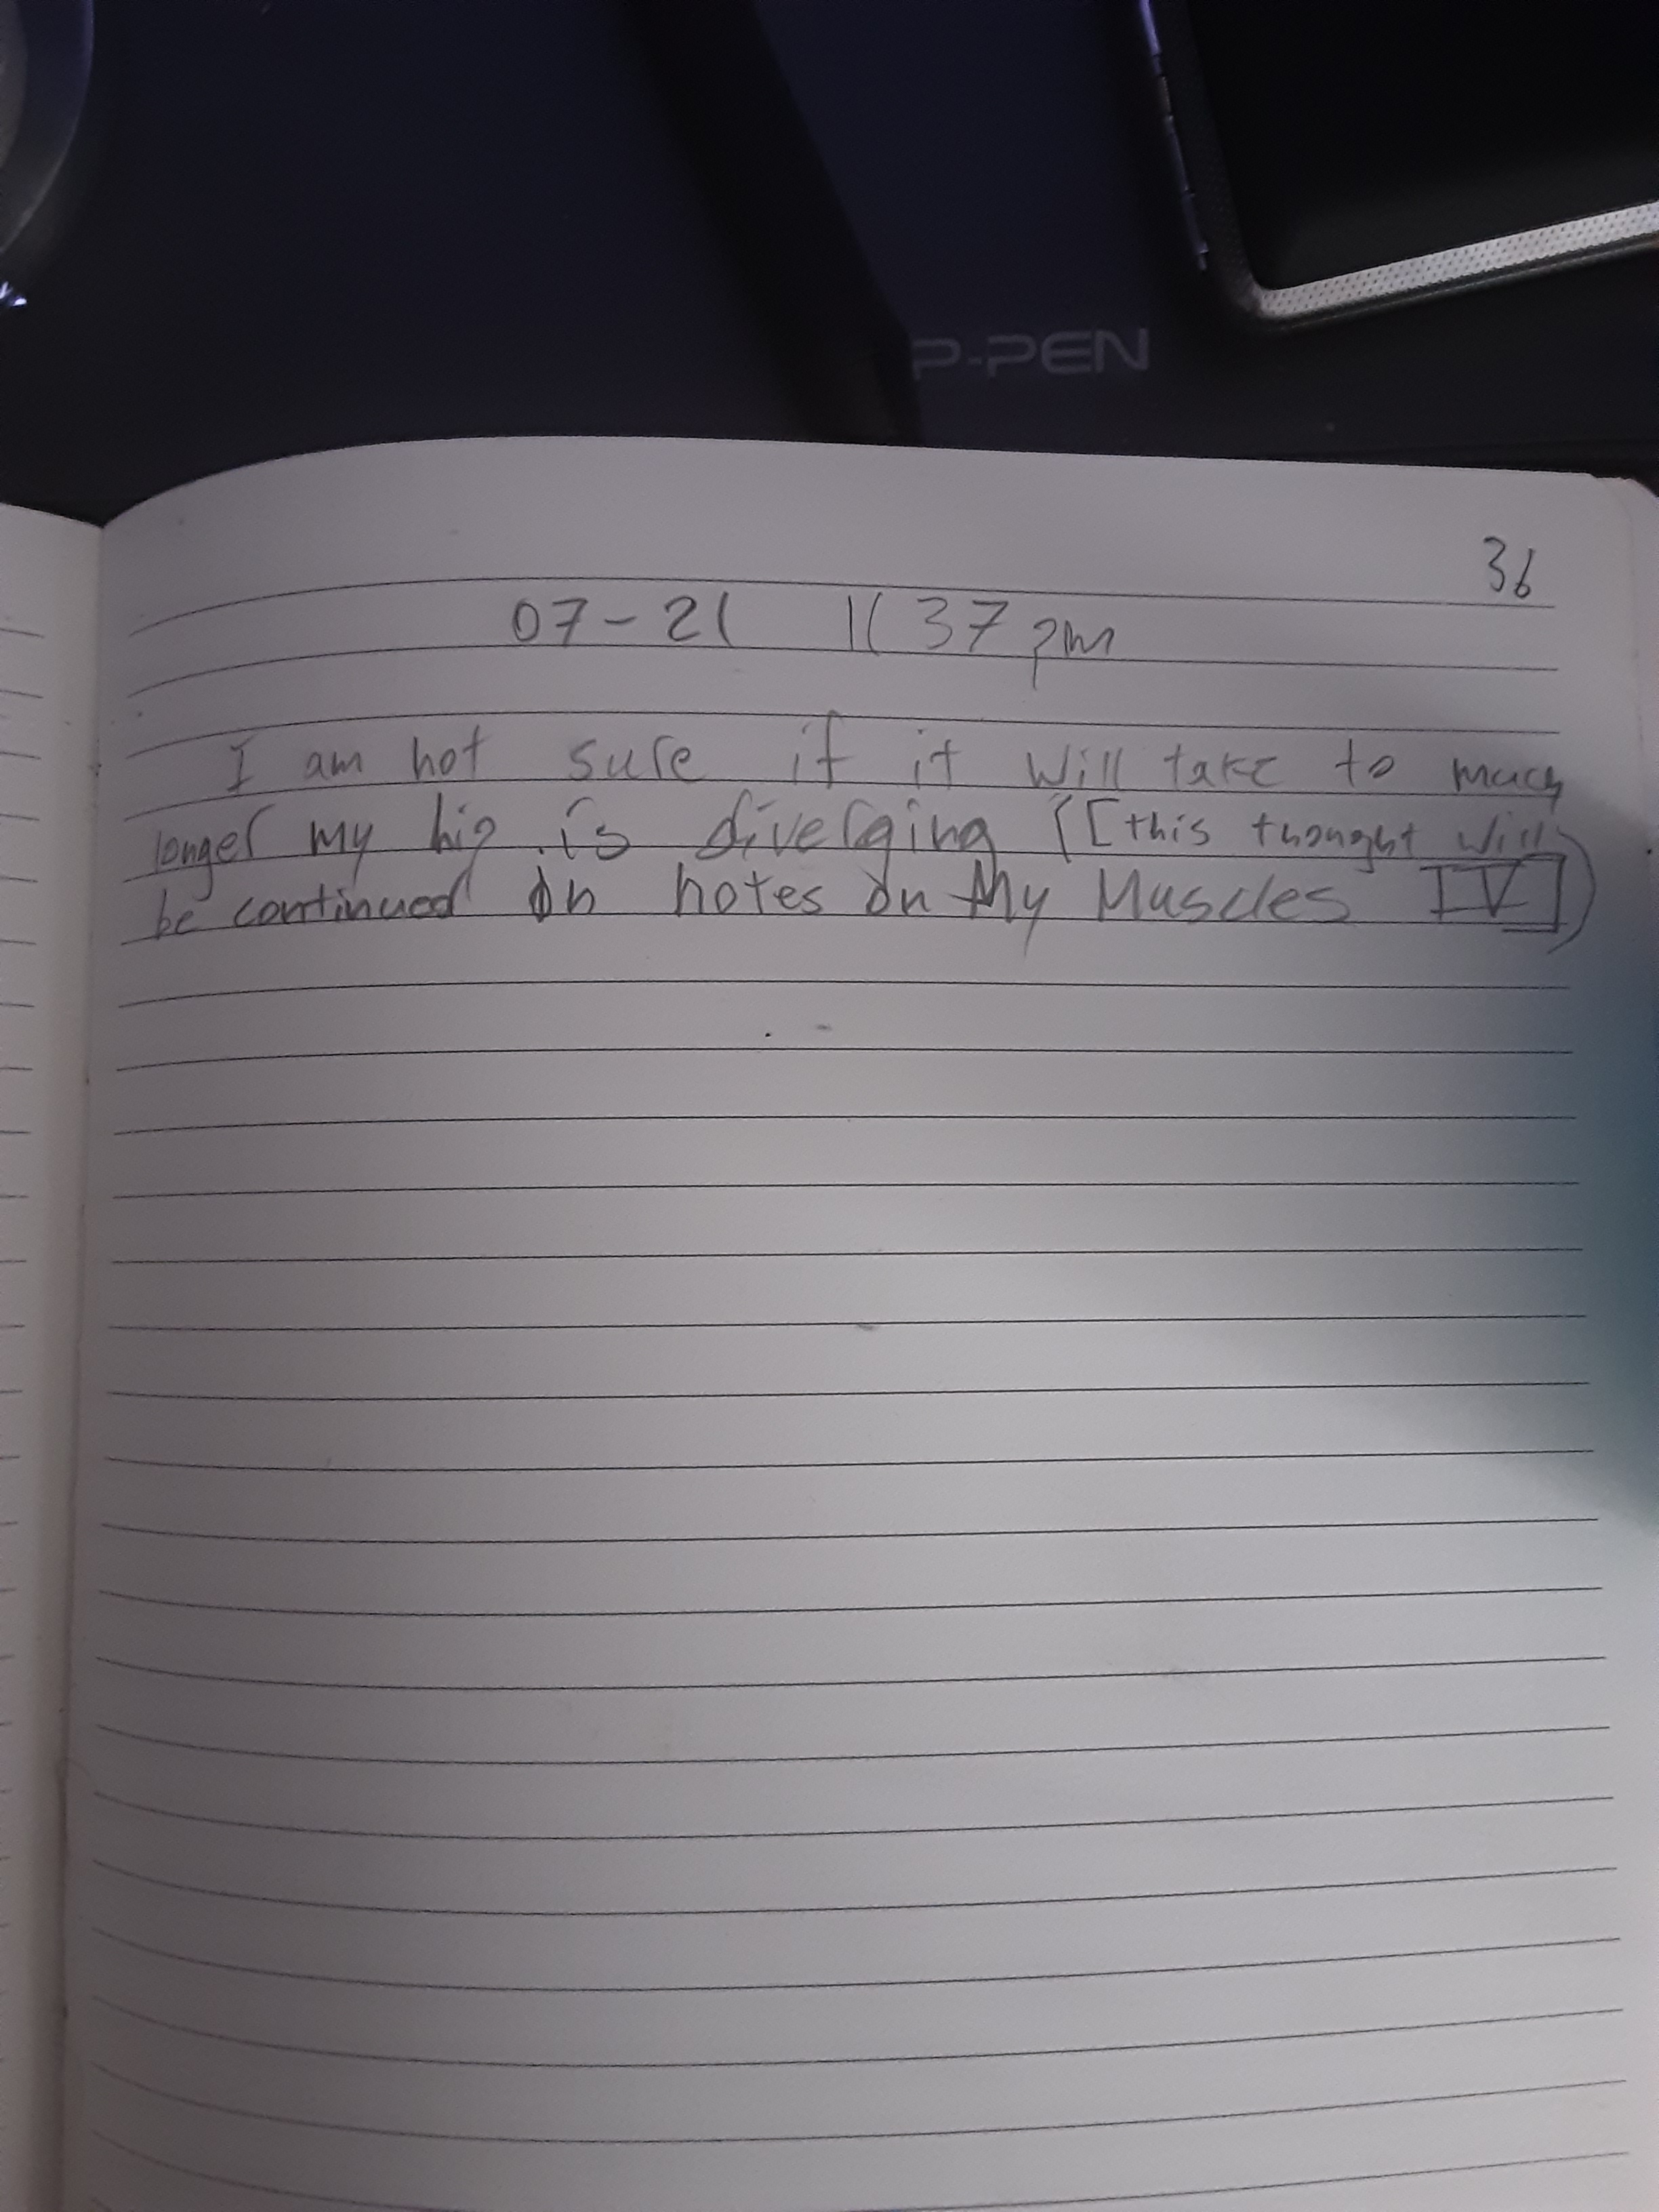 P-PEN
36
07-21 11 37 pm
I am not sure if it will take to much
longer my hip is diverging ([this thought will
be continued on notes on My Muscles IV])